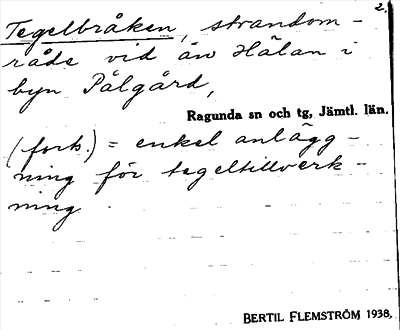 2.
Tegelbråken, strandom-
råde vid ån Hälan i
byn Pålgård,
Ragunda sn och tg, Jämtl. län.
(fork.) = enkel anlägg-
ning för tegeltillverk-
ning
BERTIL FLEMSTRÖM 1938,